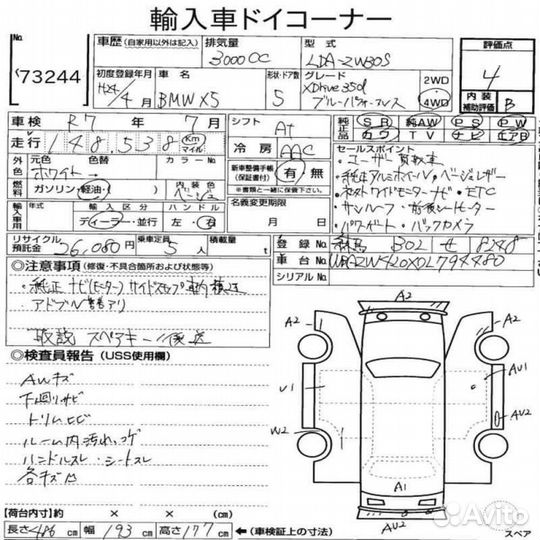 輸入車ドイコーナー
No.
73244
車歴 (自家用以外は記入)
排気量
3000CC
型式
LDA-ZW30S
評価点
4
初度登録年月
H24/4月
車名
BMW X5
形状・ドア数
5
グレード
XDrive 35d
ブルーパフォーマンス
2WD
4WD
内装
補助評価
B
車検 R7年 7月
シフト AT
純正品
SR 純AW PS PW
カワ TV ナビ エアB
走行 148538 Km
マイル
冷房 AAC
セールスポイント
・ユーザー買取車
外色
元色
ホワイト
色替
カラーNo.
新車整備手帳
(保証書付)
有・無
※書類と一緒に提供して下さい。
・純正アルミホイール・ベージュレザー
燃料
ガソリン・軽油・( )
内装色
ベージュ
名義変更期限
月 日
・ETC
・サンルーフ・前後シートヒーター
・パワーゲート・バックカメラ
輸入車用
年式
輸入区分
ディーラー・並行
ハンドル
左・右
リサイクル
預託金
26,080円
乗車定員
5人
積載量
登録No.
302 せ 8248
車台No.
WBAZW420X0L794480
シリアルNo.
◎注意事項 (修復・不具合箇所および状態等)
・純正ナビ(モーター)
・アドブルー警告アリ
取説 スペアキー 後送
◎検査員報告 (USS使用欄)
AWキズ
下廻りサビ
トリムヒビ
ルーム内汚れ、コゲ
ハンドルスレ・シートスレ
各キズ凹
【荷台内寸】 × × (cm)
長さ 486 cm 幅 193 cm 高さ 177 cm ←(車検証上の寸法)
A2
A2
A2
U1
AU1
W2
AU2
A1
AU2
スペア
Avito